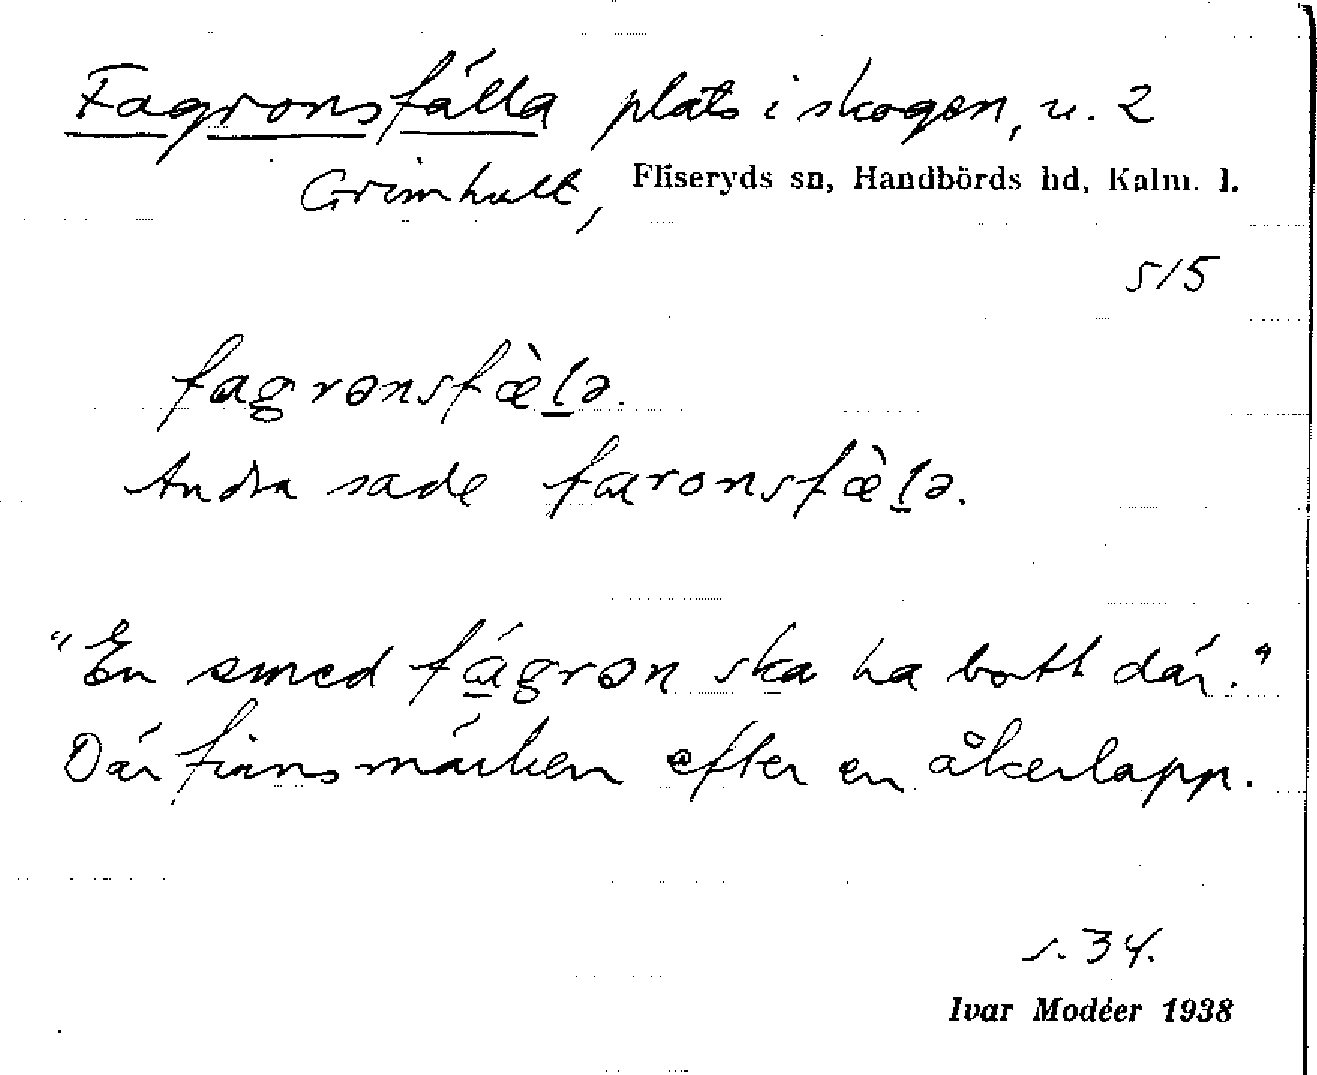 Fagronsfälla plats i skogen, u. 2
Grimhult, Fliseryds sn, Handbörds hd, Kalm. l.
5/5
fagrənsfæ̀l̲ə.
Andra sade faronsfæ̀l̲ə.
"En smed fá̲grən ska ha bott där."
Där finns märken efter en åkerlapp.
s. 34.
Ivar Modéer 1938